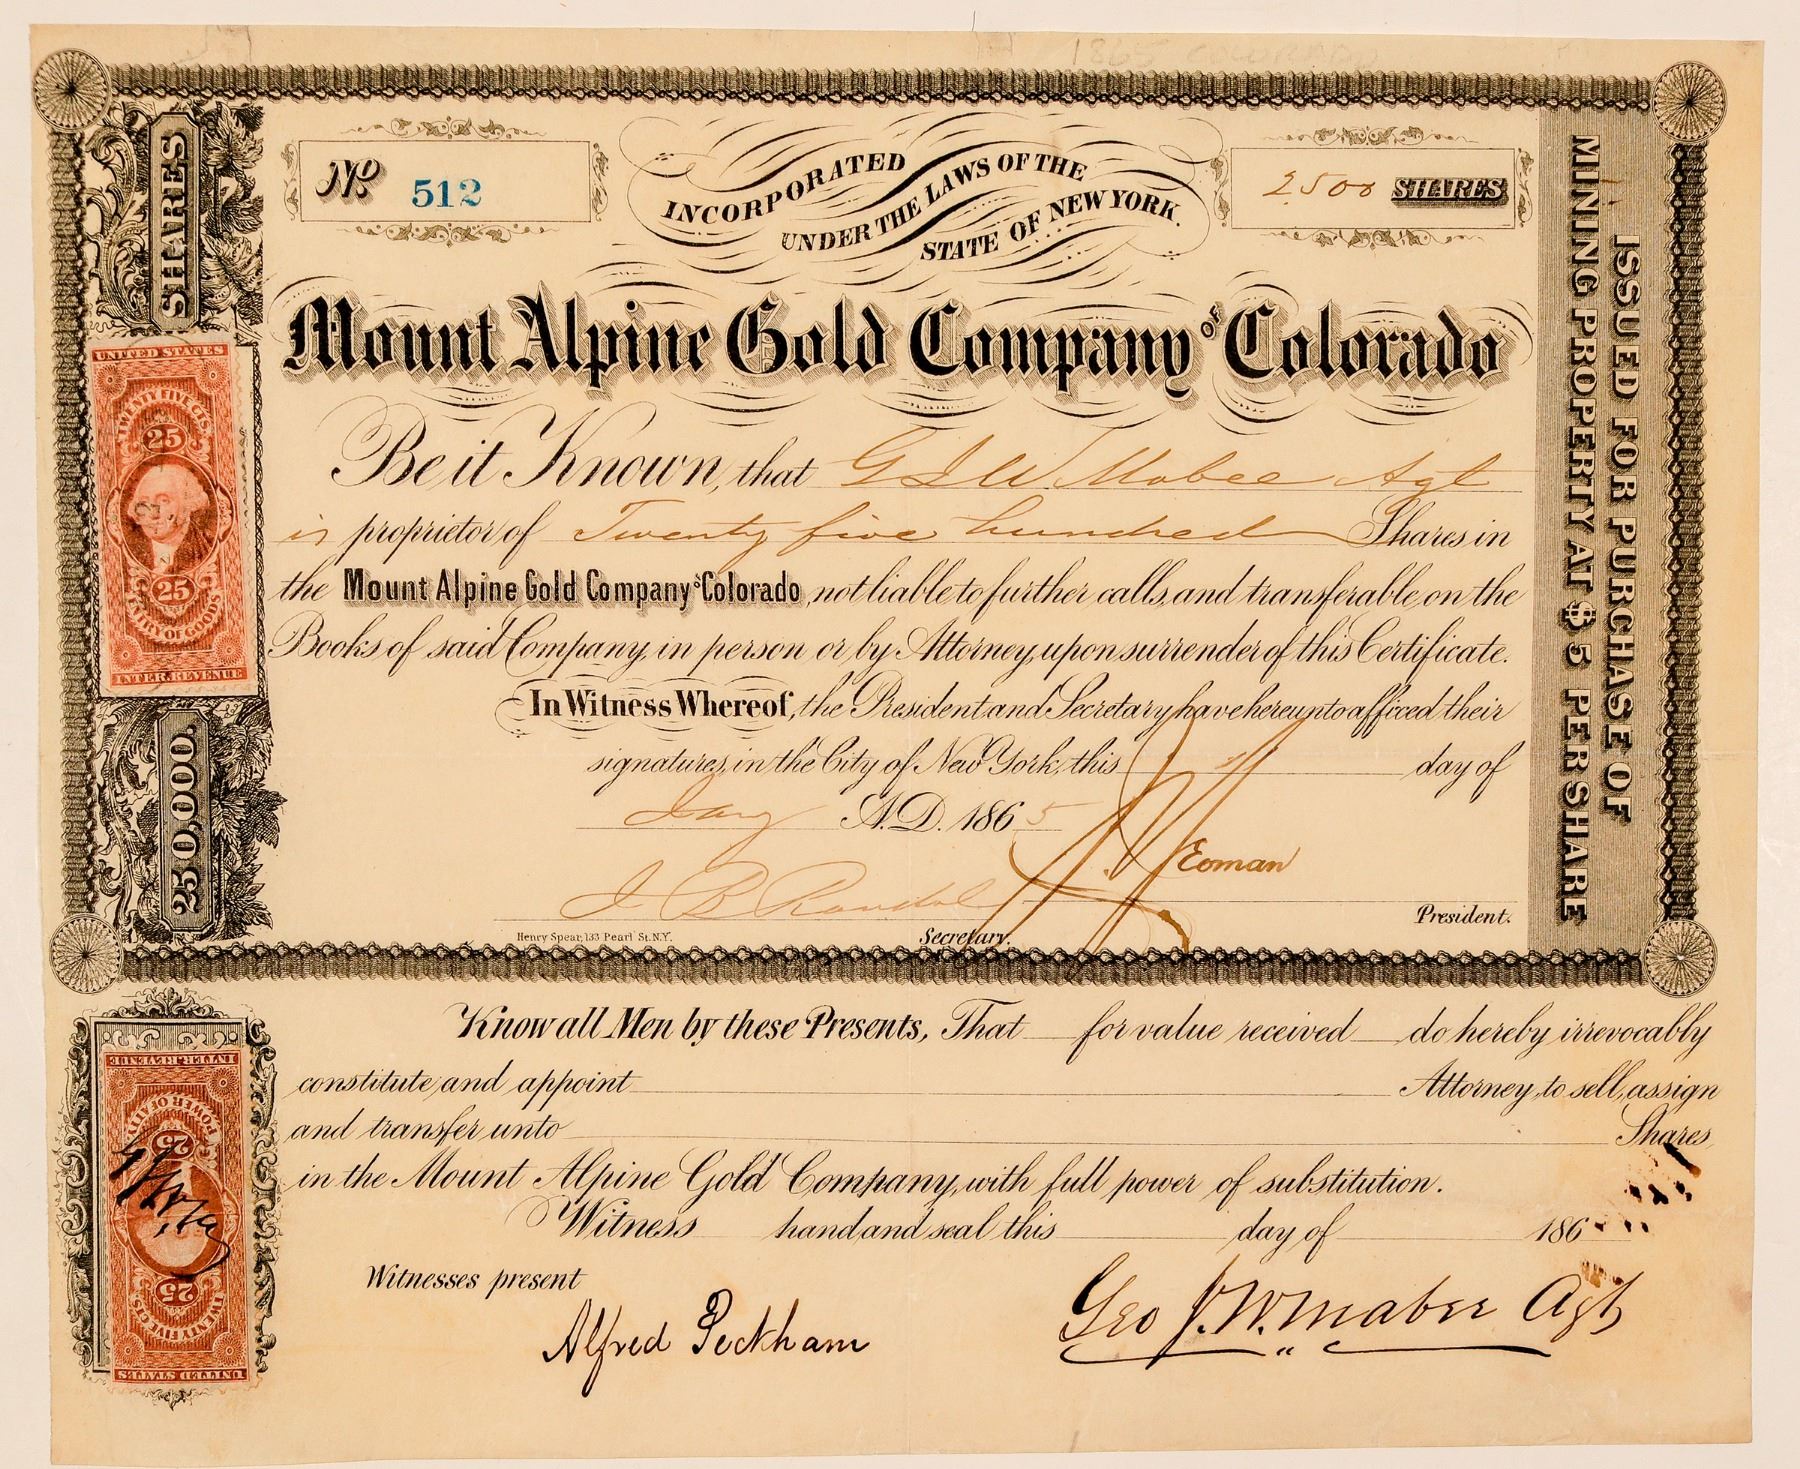 1865 COLORADO
No. 512
INCORPORATED
UNDER THE LAWS OF THE
STATE OF NEW YORK.
2500 SHARES
Mount Alpine Gold Company OF Colorado
Be it Known, that G J W. Mabee Agt
is proprietor of Twenty five hundred Shares in
the Mount Alpine Gold Company of Colorado, not liable to further calls, and transferable on the
Books of said Company, in person or by Attorney, upon surrender of this Certificate.
In Witness Whereof, the President and Secretary have hereunto affixed their
signatures, in the City of New York, this day of
Jany A.D. 1865
J B Randol
J. Yeoman
President.
Henry Spear, 133 Pearl St. N.Y.
Secretary.
SHARES
250,000.
UNITED STATES
TWENTY FIVE CTS.
25
25
ENTRY OF GOODS
INTER. REVENUE
ISSUED FOR PURCHASE OF
MINING PROPERTY AT $5 PER SHARE
Know all Men by these Presents, That for value received do hereby irrevocably
constitute and appoint Attorney, to sell, assign
and transfer unto Shares
in the Mount Alpine Gold Company, with full power of substitution.
Witness hand and seal this day of 186
Witnesses present
Alfred Peckham
Geo J. W. Mabee Agt
UNITED STATES
TWENTY FIVE CTS.
25
25
POWER OF ATT'Y
INTER. REVENUE